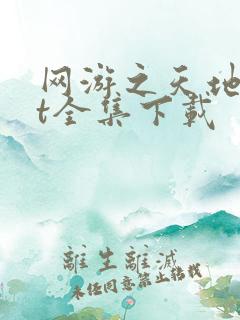 网游之天地
t全集下载
離生離滅
未经同意禁止转载